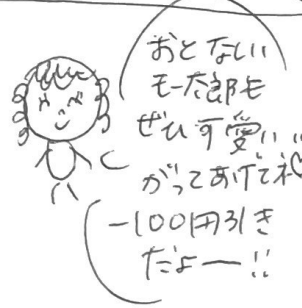 おとなしい
モー太郎も
ぜひ可愛い
がってあげてネ♡
-100円引き
だよー!!